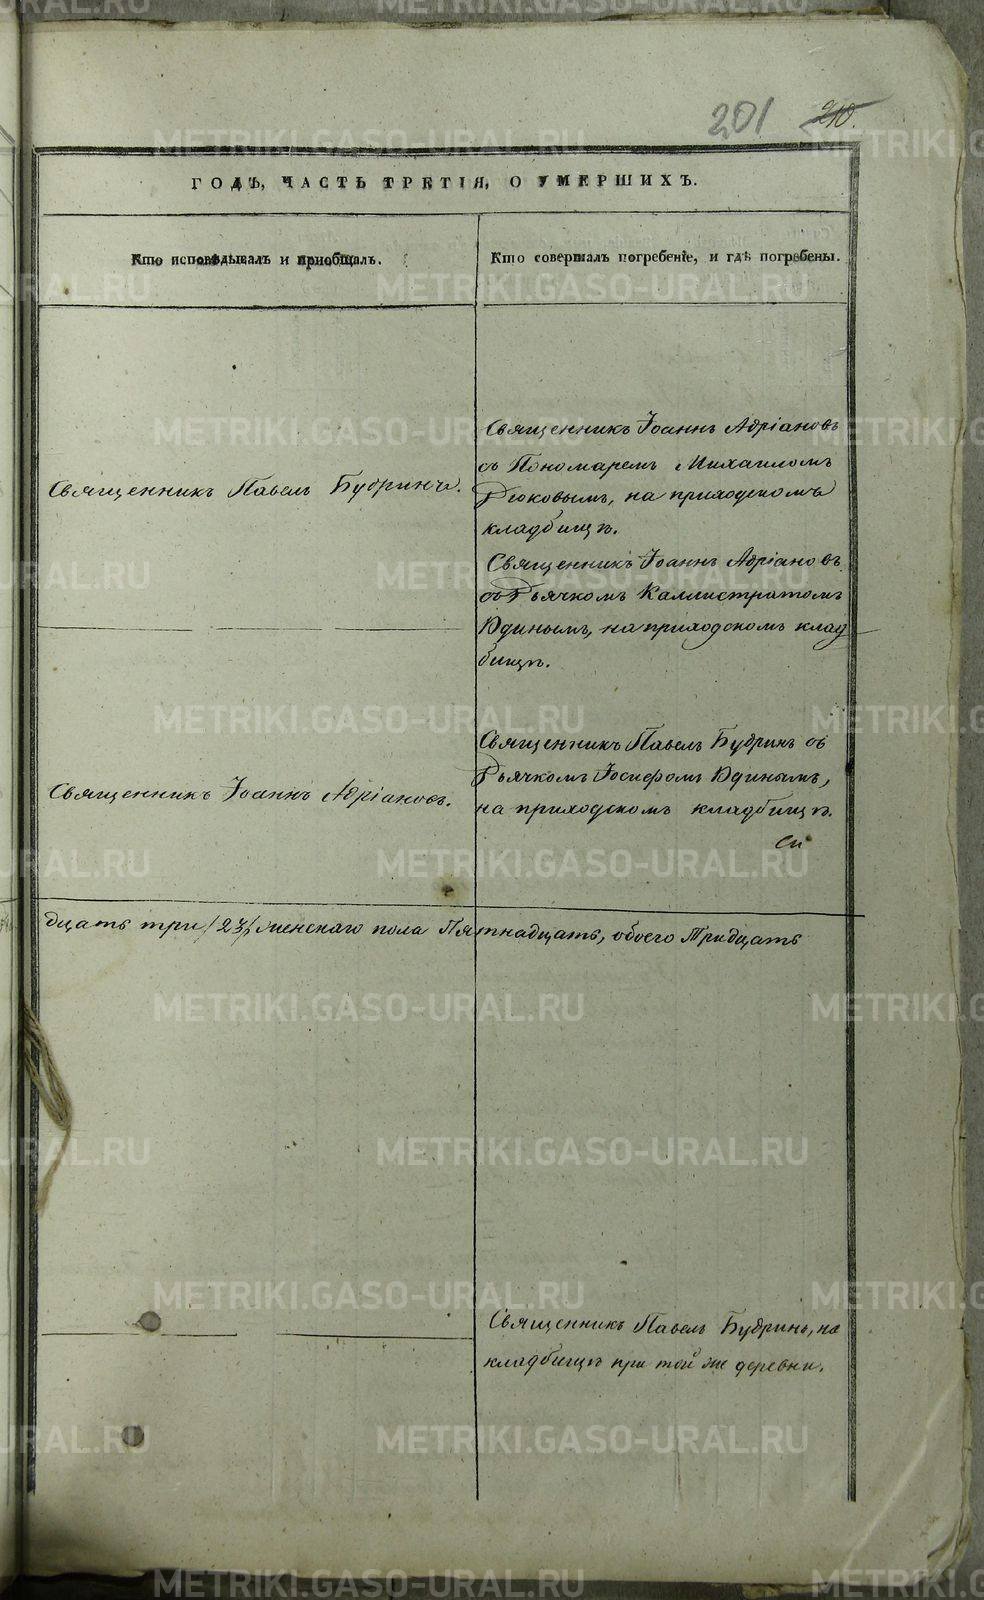 201 210.
ГОДЪ, ЧАСТЬ ТРЕТІЯ, О УМЕРШИХЪ.
Кто исповѣдывалъ и приобщалъ.
Кто совершалъ погребеніе, и гдѣ погребены.
Священникъ Павелъ Будринъ.
Священникъ Іоаннъ Адріановъ
съ Пономаремъ Михаиломъ
на приходскомъ
кладбищѣ.
Священникъ Іоаннъ Адріановъ
съ Дьячкомъ Каллистратомъ
Юдинымъ, на приходскомъ клад
бищѣ.
Священникъ Іоаннъ Адріановъ.
Священникъ Павелъ Будринъ съ
Дьячкомъ Іосифомъ Юдинымъ,
на приходскомъ кладбищѣ.
дцать три /23/, женскаго пола Пятнадцать, обоего Тридцать
Священникъ Павелъ Будринъ, на
кладбищѣ при той же деревни.
METRIKI.GASO-URAL.RU